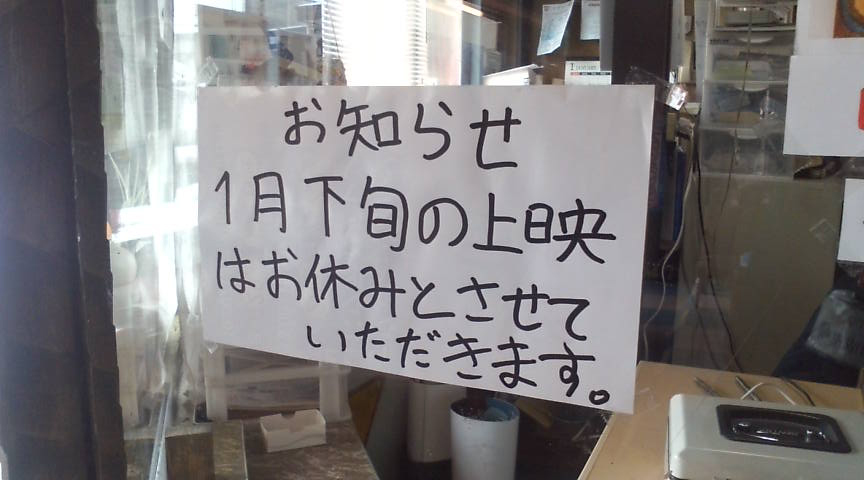 お知らせ
1月下旬の上映
はお休みとさせて
いただきます。